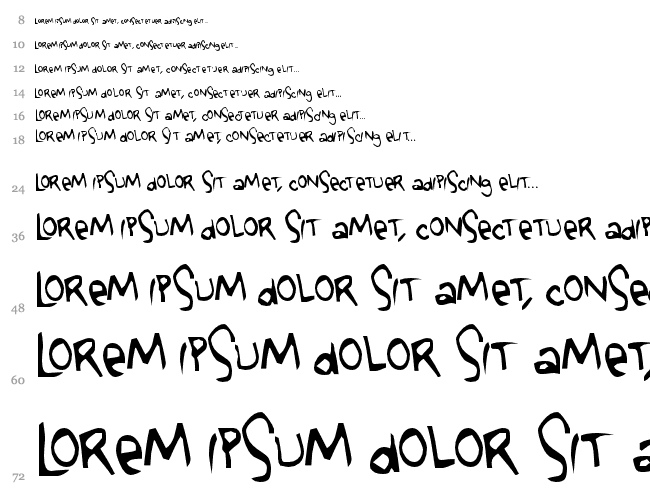 8 Lorem ipsum dolor sit amet, consectetuer adipiscing elit...
10 Lorem ipsum dolor sit amet, consectetuer adipiscing elit...
12 Lorem ipsum dolor sit amet, consectetuer adipiscing elit...
14 Lorem ipsum dolor sit amet, consectetuer adipiscing elit...
16 Lorem ipsum dolor sit amet, consectetuer adipiscing elit...
18 Lorem ipsum dolor sit amet, consectetuer adipiscing elit...
24 Lorem ipsum dolor sit amet, consectetuer adipiscing elit...
36 Lorem ipsum dolor sit amet, consectetuer adip
48 Lorem ipsum dolor sit amet, conse
60 Lorem ipsum dolor sit amet,
72 Lorem ipsum dolor sit a